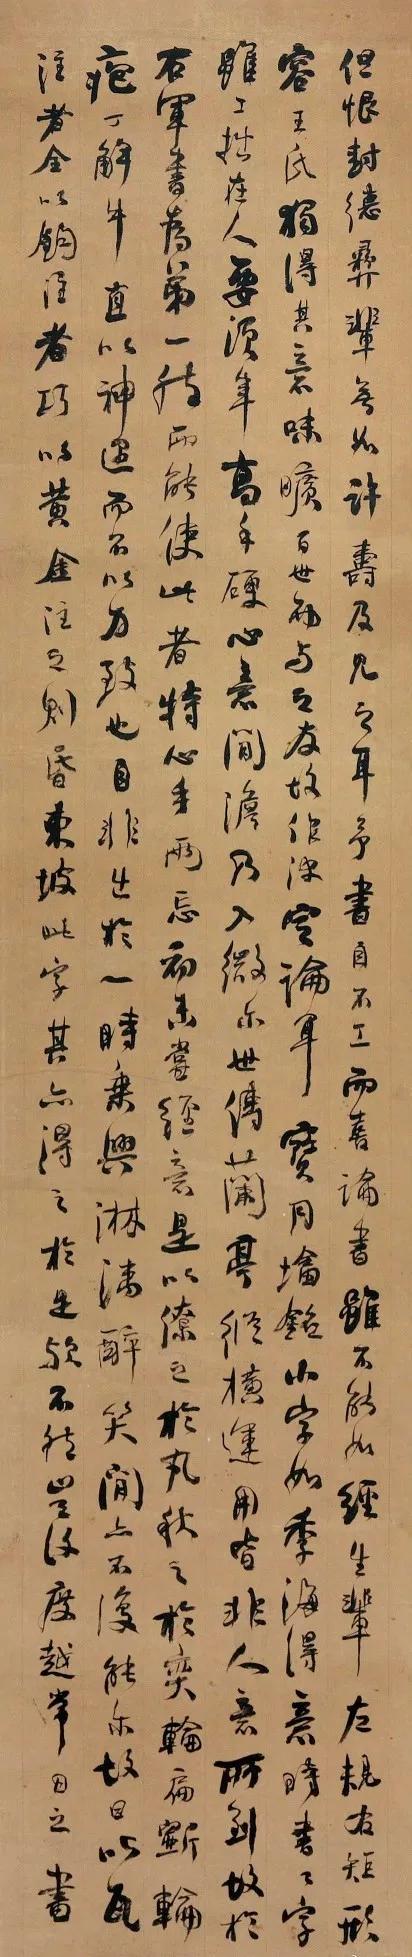 但恨封德彝輩無如許壽及見之耳予書自不工而喜論書雖不能如經生輩左規右矩形
容王氏獨得其意味曠百世而與之友故作決定論耳寶月塔銘小字如季海得意時書書字
雖工拙在人要須年高手硬心意閒澹乃入微爾世傳蘭亭縱橫運用皆非人意所到故於
右軍書為第一然而能使此者特心手兩忘初未嘗經意是以僚之於丸秋之於奕輪扁斲輪
庖丁解牛直以神遇而不以力致也自非出於一時乘興淋漓醉笑間亦不復能爾故曰以瓦
注者全以鉤注者巧以黃金注之則昏東坡此字其亦得之於是歟不然豈得度越常日之書